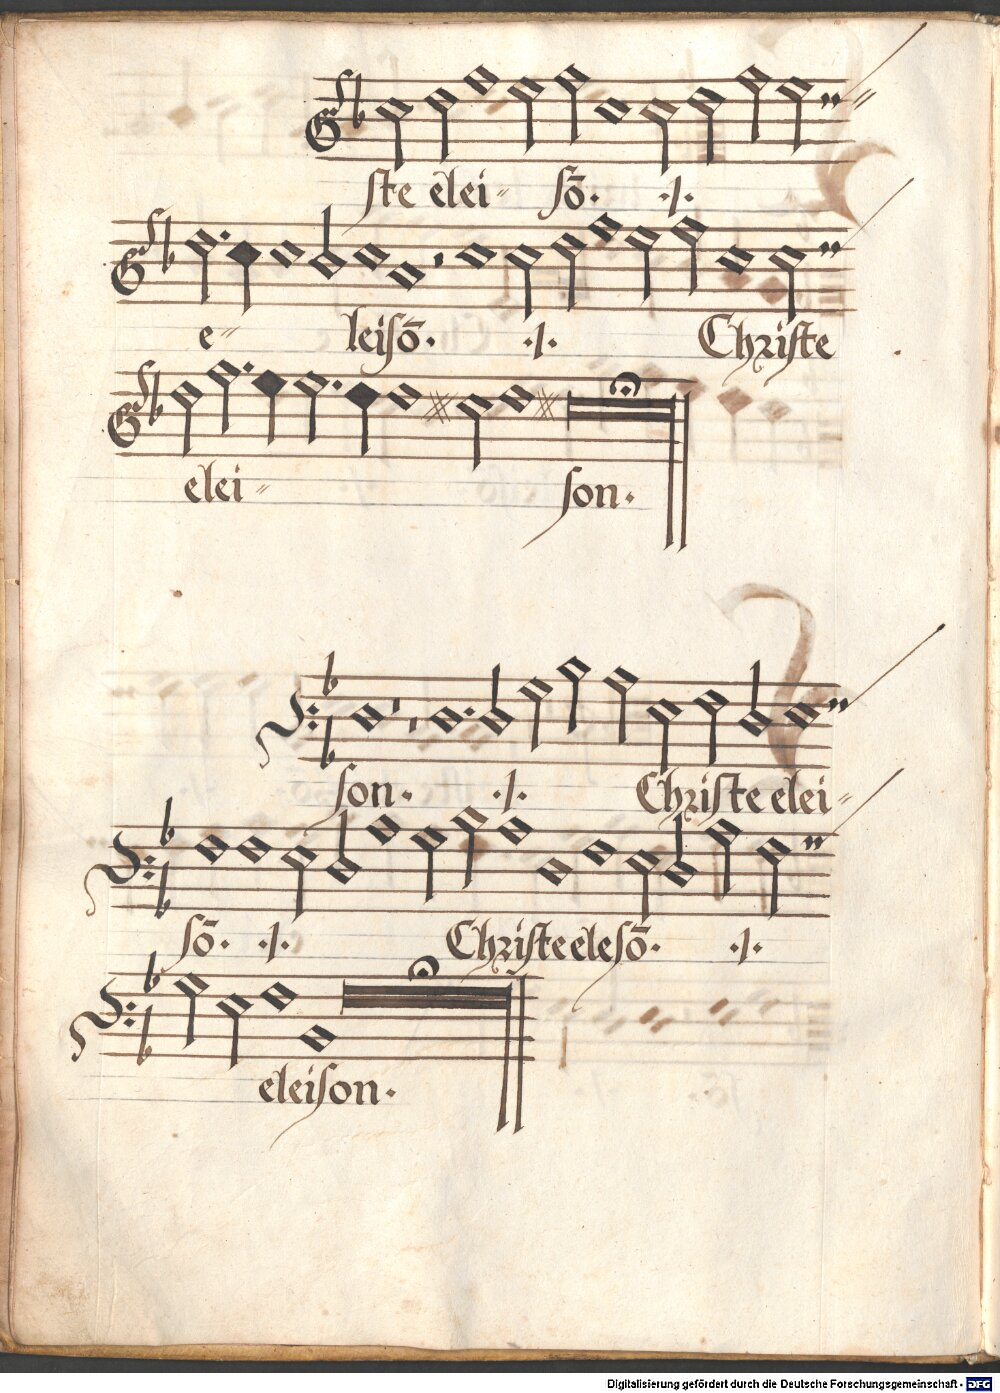 ste elei〃 sō. ·/.
e〃 leisō. ·/. Christe
elei〃 son.
son. ·/. Christe elei〃
sō. ·/. Christe elesō. ·/.
eleison.
Digitalisierung gefördert durch die Deutsche Forschungsgemeinschaft - DFG